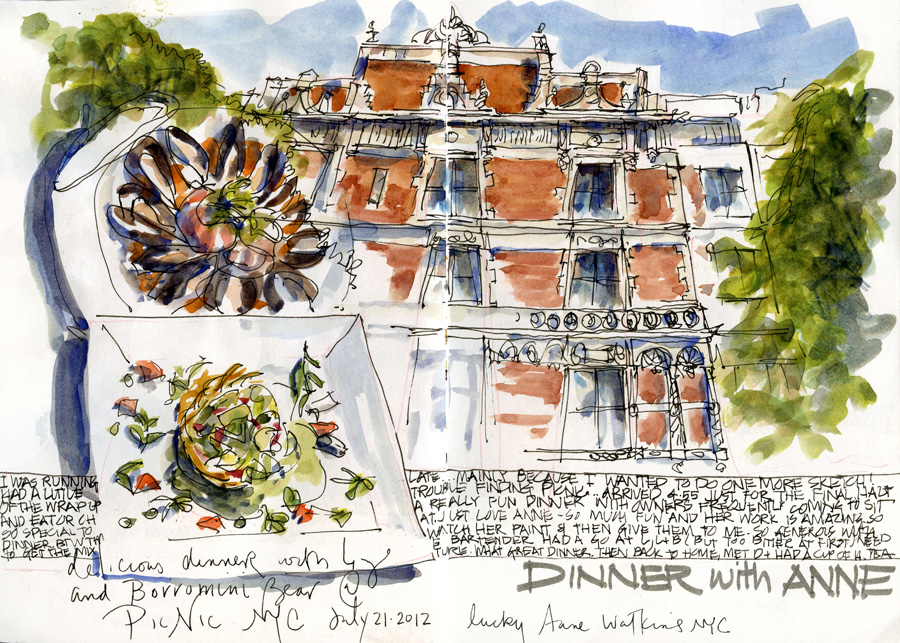 I WAS RUNNING LATE.. MAINLY BECAUSE I WANTED TO DO ONE MORE SKETCH!
HAD A TROUBLE FINDING PICNIC. ARRIVED 4.55 JUST FOR THE FINAL HALF
OF THE WRAP UP A REALLY FUN DINNER WITH OWNERS FREQUENTLY COMING TO SIT
AND EAT OR CH AT. JUST LOVE ANNE - SO MUCH FUN AND HER WORK IS AMAZING. SO
SO SPECIAL TO WATCH HER PAINT & THEN GIVE THEM TO ME. SO GENEROUS WITH
DINNER. BARTENDER HAD A GO AT BUT TOO BITTER AT FIRST. NEED
TO GET THE MIXTURE. WHAT GREAT DINNER. THEN BACK TO HOME, MET D + HAD A CUP OF H. TEA.
DINNER with ANNE
delicious dinner with Liz
and Borromini Bear @
PicNic NYC July 21.2012
lucky Anne Watkins NYC